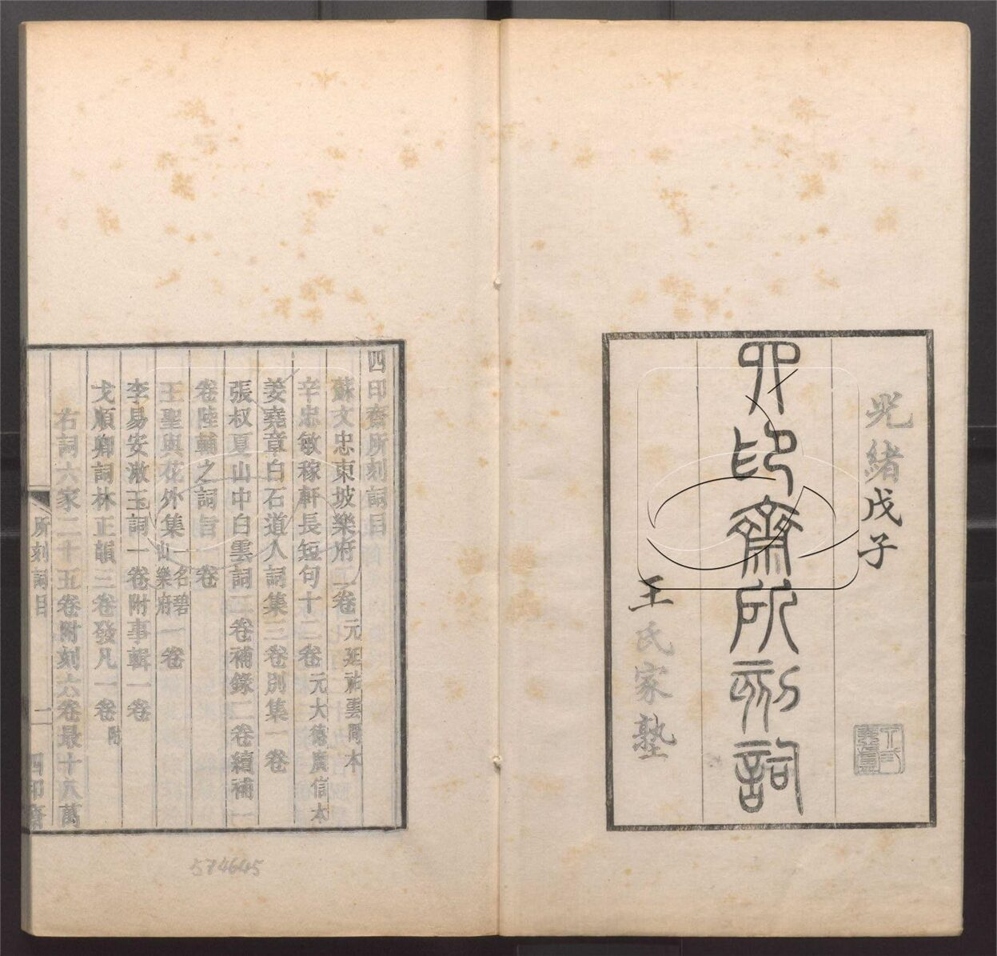 光緒戊子
四印齋所刻詞
王氏家塾
四印齋所刻詞目
蘇文忠東坡樂府二卷元延祐雲間本
辛忠敏稼軒長短句十二卷元大德廣信本
姜堯章白石道人詞集三卷別集一卷
張叔夏山中白雲詞二卷補錄二卷續補一
卷陸輔之詞旨一卷
王聖與花外集一名碧山樂府一卷
李易安漱玉詞一卷附事輯一卷
戈順卿詞林正韻三卷發凡一卷附
右詞六家二十五卷附刻六卷最十八萬
所刻詞目
一
四印齋
574645